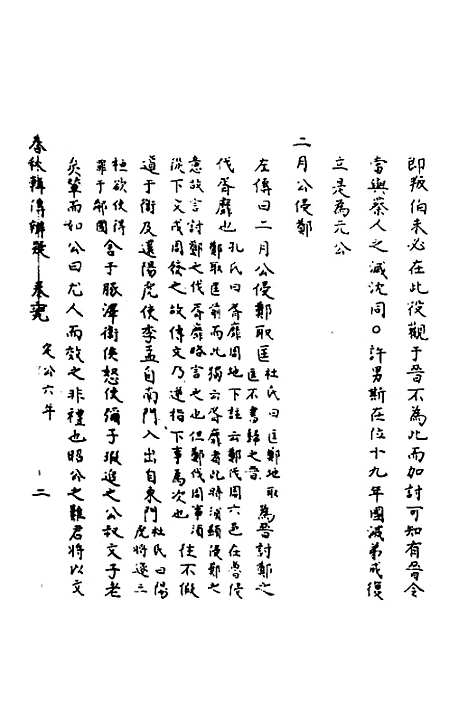 即叛伯未必在此役觀于晉不為此而加討可知有晉令
當與蔡人之滅沈同○許男斯在位十九年國滅弟成復
立是為元公
二月公侵鄭
左傳曰二月公侵鄭取匡杜氏曰匡鄭地取匡不書歸之晉為晉討鄭之
伐胥靡也孔氏曰胥靡周地下註云鄭伐周六邑在魯侵鄭取匡前而此獨云胥靡者此時須顯侵鄭之
意故言討鄭之伐胥靡略言之也但鄭伐周事須從下文戍周後之故傳文乃遂指下事為次也往不假
道于衛及還陽虎使季孟自南門入出自東門杜氏曰陽虎將逐三
桓欲使得罪于鄰國舍于豚澤衛侯怒使彌子瑕追之公叔文子老
矣輦而如公曰尤人而效之非禮也昭公之難君將以文
春秋輯傳辨疑 定公六年 二